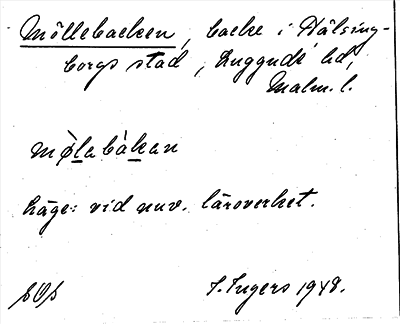 Möllebacken, backe i Hälsing-
borgs stad, Luggude hd,
Malm. l.
mø̀labàkan
Läge: vid nuv. läroverket.
I. Ingers 1948.